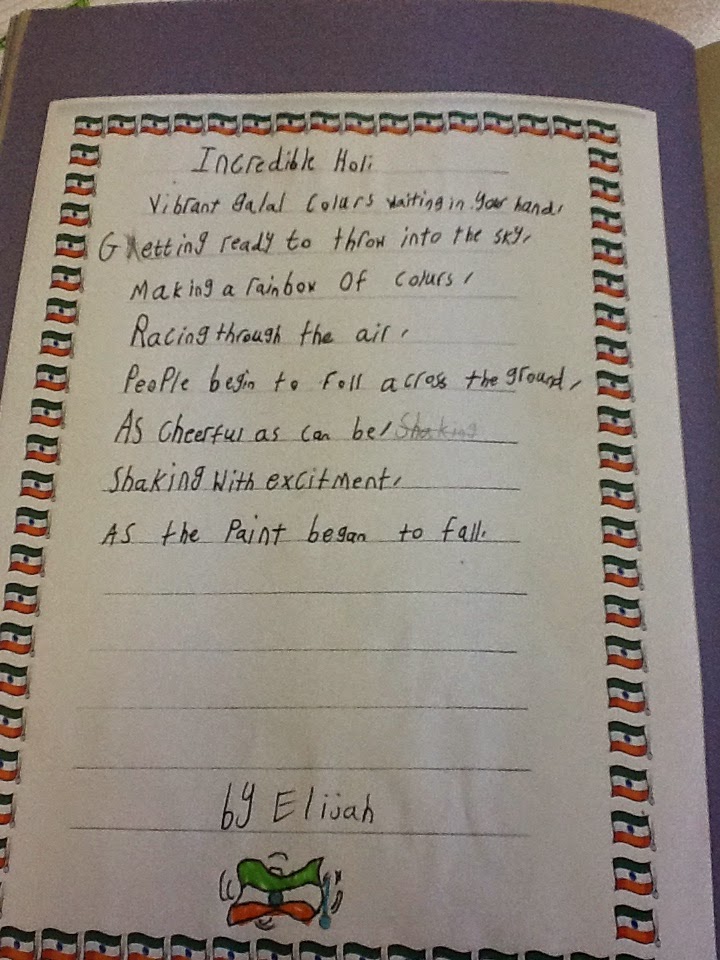 Incredible Holi
Vibrant galal Colurs waiting in your hand,
Getting ready to throw into the sky,
Making a rainbow Of Colurs,
Racing through the air,
People begin to roll across the ground,
As Cheerful as can be, Shaking
Shaking With excitment,
As the Paint began to fall.
by Elijah